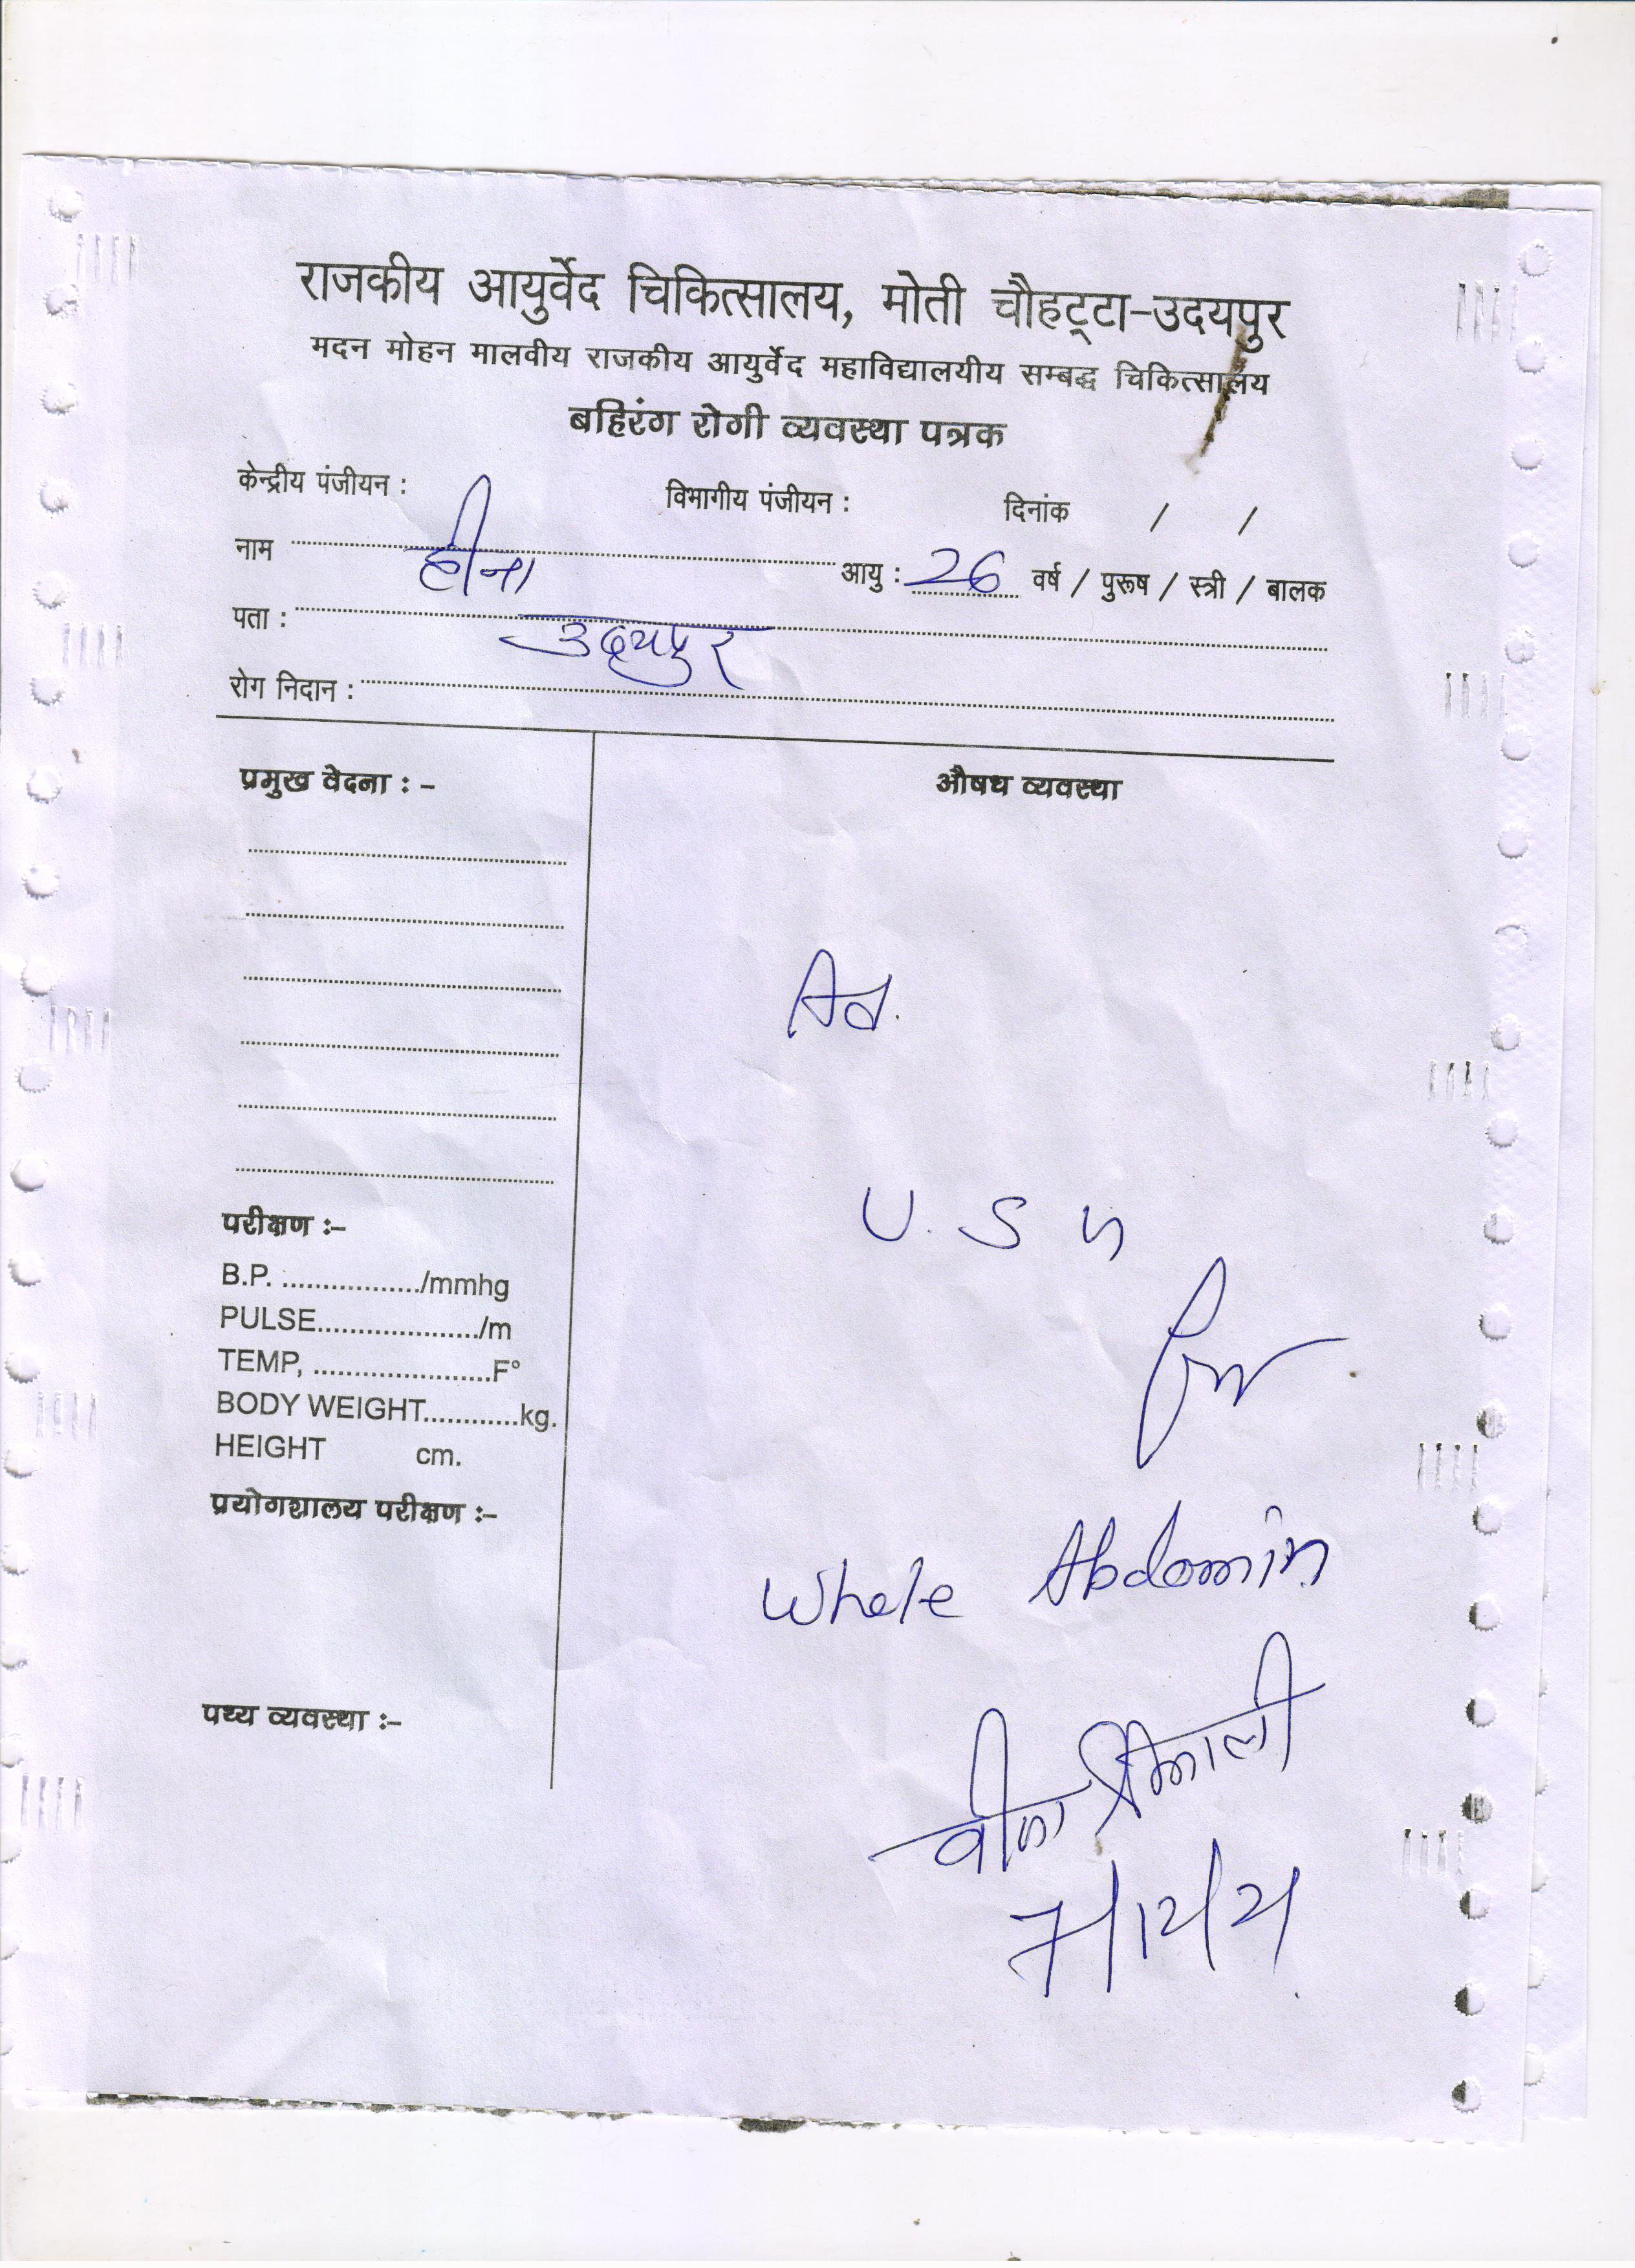 राजकीय आयुर्वेद चिकित्सालय, मोती चौहट्टा-उदयपुर
मदन मोहन मालवीय राजकीय आयुर्वेद महाविद्यालयीय सम्बद्ध चिकित्सालय
बहिरंग रोगी व्यवस्था पत्रक
केन्द्रीय पंजीयन : विभागीय पंजीयन : दिनांक / /
नाम हीना आयु : 26 वर्ष / पुरूष / स्त्री / बालक
पता : उदयपुर
रोग निदान :
प्रमुख वेदना : - औषध व्यवस्था
Ad.
U. S G
परीक्षण :-
B.P. ................./mmhg
PULSE..................../m
TEMP, ......................F°
for
BODY WEIGHT............kg.
HEIGHT cm.
प्रयोगशालय परीक्षण :-
Whole Abdomin
पथ्य व्यवस्था :-
श्रीमाली